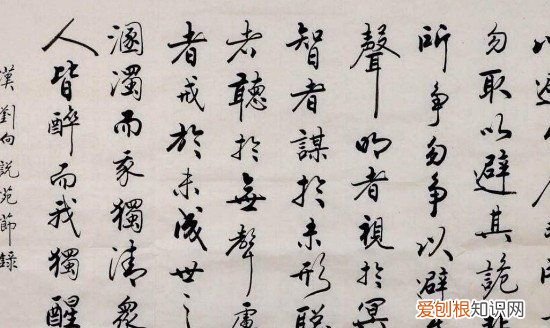 勿取以避其詭
所爭勿爭以避
聲明者視於冥
智者謀於未形聰
者聽於無聲慮
者戒於未成世之
溷濁而我獨清眾
人皆醉而我獨醒
漢劉向說苑節錄
爱刨根知识网